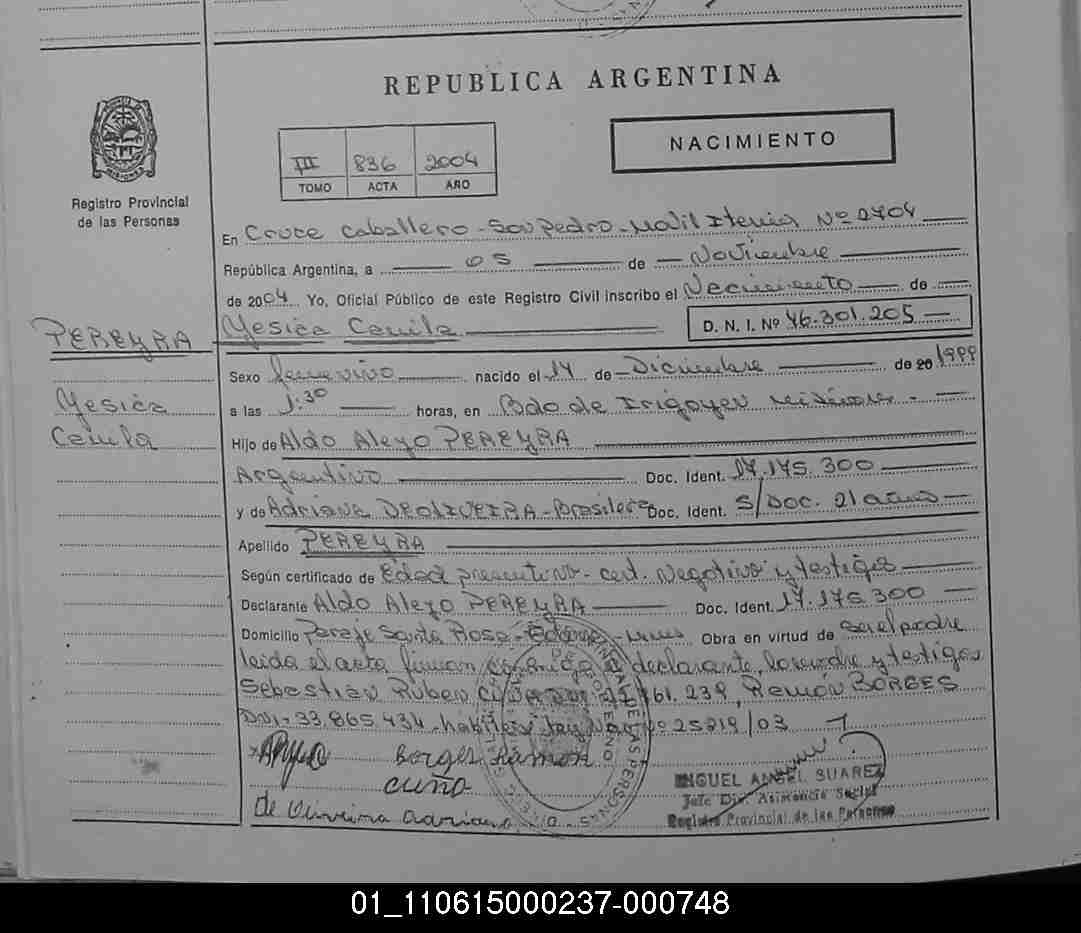 REPUBLICA ARGENTINA
NACIMIENTO
III 836 2004
TOMO ACTA AÑO
MISIONES
Registro Provincial
de las Personas
En Cruce Caballero - San Pedro - Movil Itenia Nº 2704
República Argentina, a 05 de Noviembre
de 2004 Yo, Oficial Público de este Registro Civil inscribo el Nacimiento de
PEREYRA Yesica Camila D. N. I. Nº 46.301.205
Sexo femenino nacido el 14 de Diciembre de 20 1999
Yesica
a las 1:30 horas, en Bdo de Irigoyen Misiones -
Camila
Hijo de Aldo Alejo PEREYRA
Argentino Doc. Ident. 17.175.300
y de Adriana DEOLIVEIRA - Brasilera Doc. Ident. S/Doc. 21 años
Apellido PEREYRA
Según certificado de Edad presuntiva - cert. Negativo y testigos
Declarante Aldo Alejo PEREYRA Doc. Ident. 17.175.300
Domicilio Paraje Santa Rosa - Obra en virtud de ser el padre
leida el acta firman conmigo el declarante, la madre y testigos
Sebastián Ruben 761.239, Ramón BORGES
DNI - 33.865.434, Nº 25819/03
Borges Ramon
cuña
de Oliveira adriana
MIGUEL ANGEL SUAREZ
Jefe Div. Asistencia Social
Registro Provincial de las Personas
01_110615000237-000748